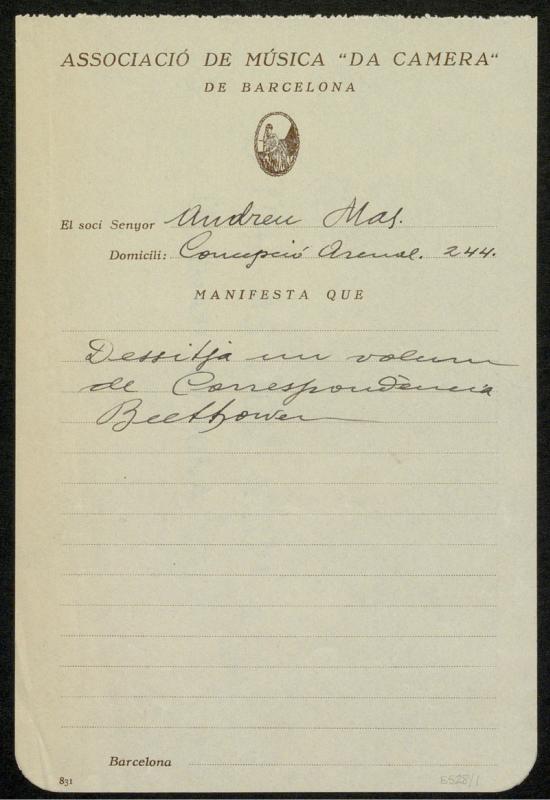 ASSOCIACIÓ DE MÚSICA "DA CAMERA"
DE BARCELONA
El soci Senyor Andreu Mas.
Domicili: Concepció Arenal. 244.
MANIFESTA QUE
Dessitja un volum
de Correspondència
Beethowen
Barcelona
831
E528/1